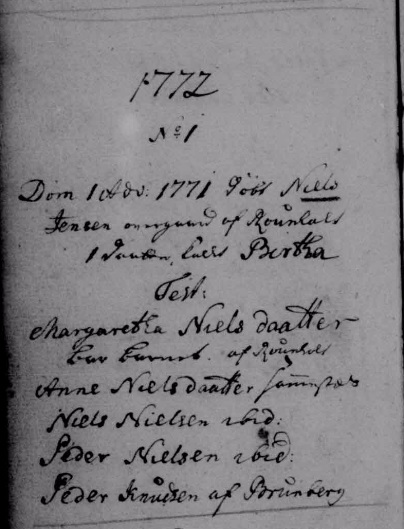 1772
No 1
Dom 1 Adv: 1771 döbt Niels
Jensen overgaard af Rounkals
1 Daatter, kaldt Birtha
Test:
Margaretha Niels daatter
bar barnet. af
Anne Nielsdaatter sammestæds
Niels Nielsen ibid:
Peder Nielsen ibid:
Peder Knudsen af Brunberg